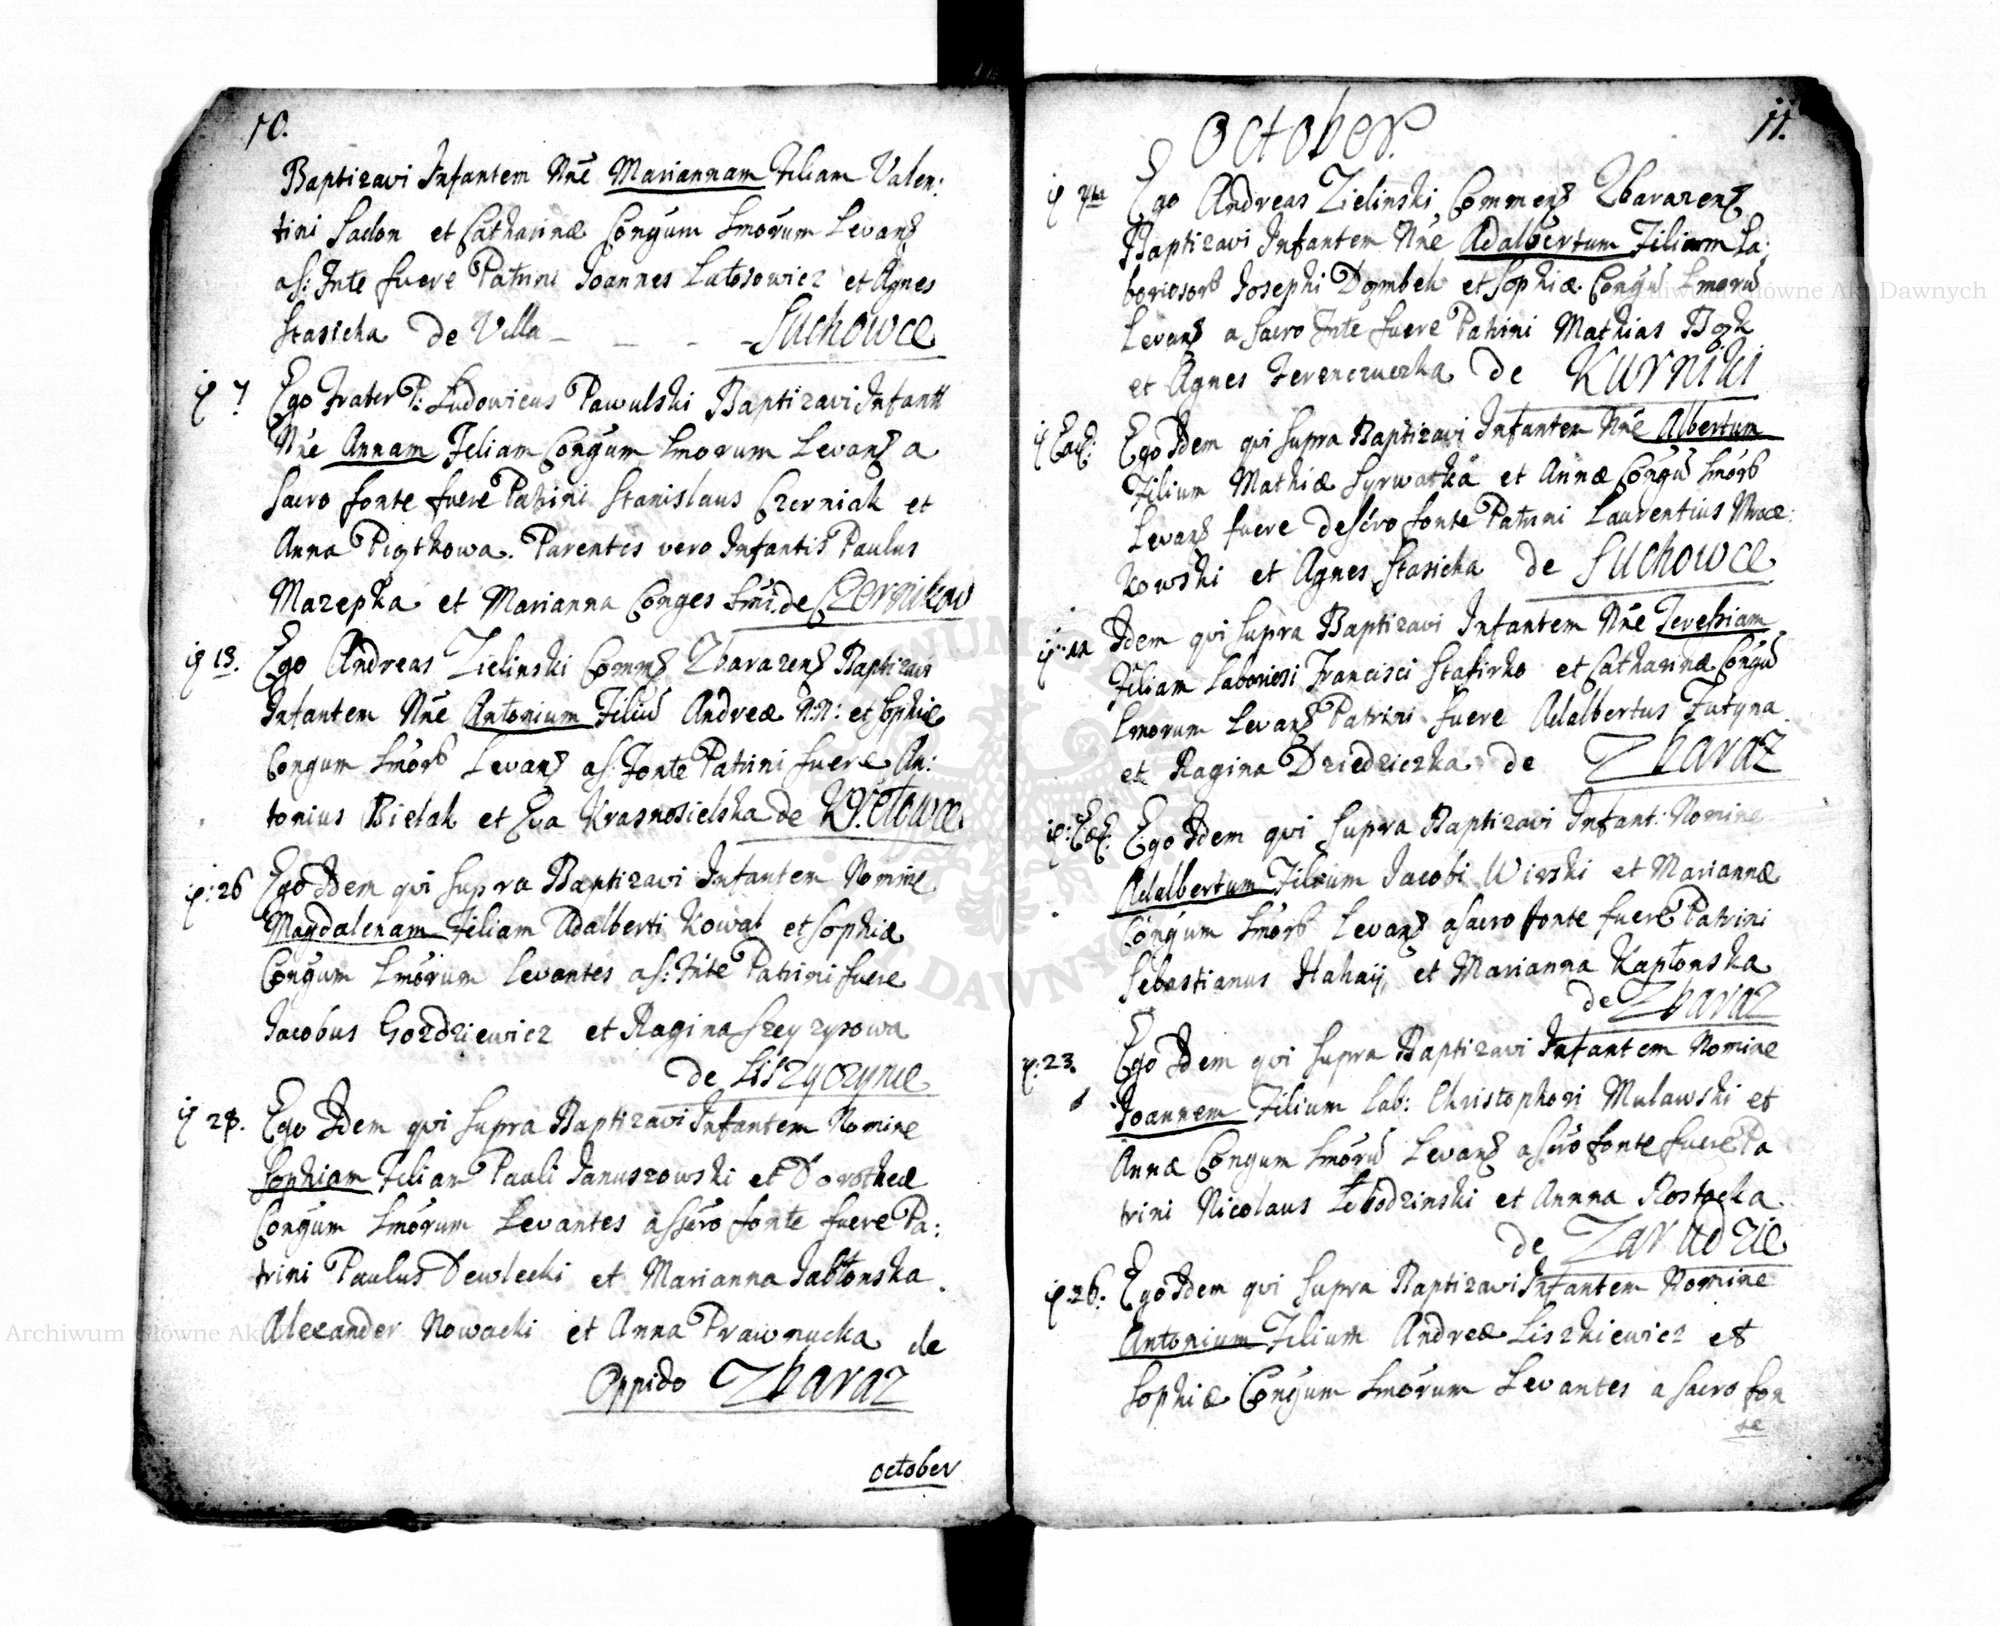 10.
Baptizavi Infantem Nñe Mariannam Filiam Valen:
tini Sadon et Catharinæ Congum Lmorum Levan
as: Fnte fuere Patrini Joannes Lutosowicz et Agnes
Stasicha de Villa - - - - Suchowce
7 Ego Frater P: Ludovicus Pawulski Baptizavi Infant
Nñe Annam Filiam Congum Lmorum Levan a
sacro fonte fuere Patrini Stanislaus Czerniak et
Anna Piątkowa. Parentes vero Infantis Paulus
Mazepka et Marianna Conges Lmi. de Czernikow
13. Ego Andreas Zielinski Comm Zbarazen Baptizavi
Infantem Nñe Antonium Filiu Andreæ N:N: et Sophiæ
Congum Lmor Levan as: Fonte Patrini fuere An:
tonius Bielak et Eva Krasnosielska de
26 Ego Idem qui supra Baptizavi Infantem Nomine
Magdalenam Filiam Adalberti Kowal et Sophiæ
Congum Lmorum Levantes as: Fnte Patrini fuere
Jacobus Gozdziewicz et Ragina Szeyzysowa
de
28. Ego Idem qui supra Baptizavi Infantem Nomine
Sophiam Filiam Pauli Januszowski et Dorotheæ
Congum Lmorum Levantes a Sacro fonte fuere Pa:
trini Paulus Dewlecki et Marianna Jabłonska.
Alexander Nowacki et Anna Prawnucka de
Oppido Zbaraz
october
11.
October
Ego Andreas Zielinski Commen Zbarazen
Baptizavi Infantem Nñe Adalbertum Filium La:
boriosor Josephi Dombek et Sophiæ Congu Lmoru
Levan a sacro Fnte fuere Patrini Mathias Bąk
et Agnes Ferenczuczka de Kurniki
Ead: Ego Idem qui supra Baptizavi Infantem Nñe Albertum
Filium Mathiæ Syrwatka et Annæ Congu Lmor
Levan fuere de Scro fonte Patrini Laurentius Mroc:
kowski et Agnes Stasicha de Suchowce
Idem qui supra Baptizavi Infantem Nñe Teressiam
Filiam Laboriosi Francisci Stasirko et Catharinæ Congu
Lmorum Levan Patrini fuere Adalbertus Futyna
et Ragina Dziedziczka de Zbaraz
Ead: Ego Idem qui supra Baptizavi Infant: Nomine
Adalbertum Filium Jacobi Wirski et Mariannæ
Congum Lmor Levan a sacro fonte fuere Patrini
Sebastianus Hahaij, et Marianna Kapłonska
de Zbaraz
23. Ego Idem qui supra Baptizavi Infantem Nomine
Joannem Filium Lab: Christophori Mulawski et
Annæ Congum Lmoru Levan a scro fonte fuere Pa
trini Nicolaus Łebodzinski et Annna Rostocka
de Zarudzie
26. Ego Idem qui supra Baptizavi Infantem Nomine
Antonium Filium Andreæ Liszkiewicz et
Sophiæ Congum Lmorum Levantes a sacro fon
te
Archiwum Główne Akt Dawnych